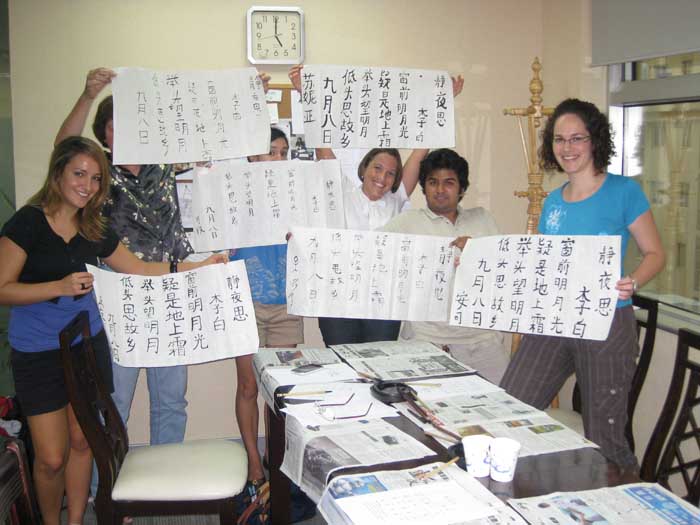 静夜思
李白
窗前明月光
疑是地上霜
举头望明月
低头思故乡
九月八日
静夜思
李白
窗前明月光
疑是地上霜
举头望明月
低头思故乡
九月八日
静夜思
李白
窗前明月光
疑是地上霜
举头望明月
低头思故乡
九月八日
静夜思
李白
窗前明月光
疑是地上霜
举头望明月
低头思故乡
九月八日
静夜思
李白
窗前明月光
疑是地上霜
举头望明月
低头思故乡
九月八日
静夜思
李白
窗前明月光
疑是地上霜
举头望明月
低头思故乡
九月八日
安可